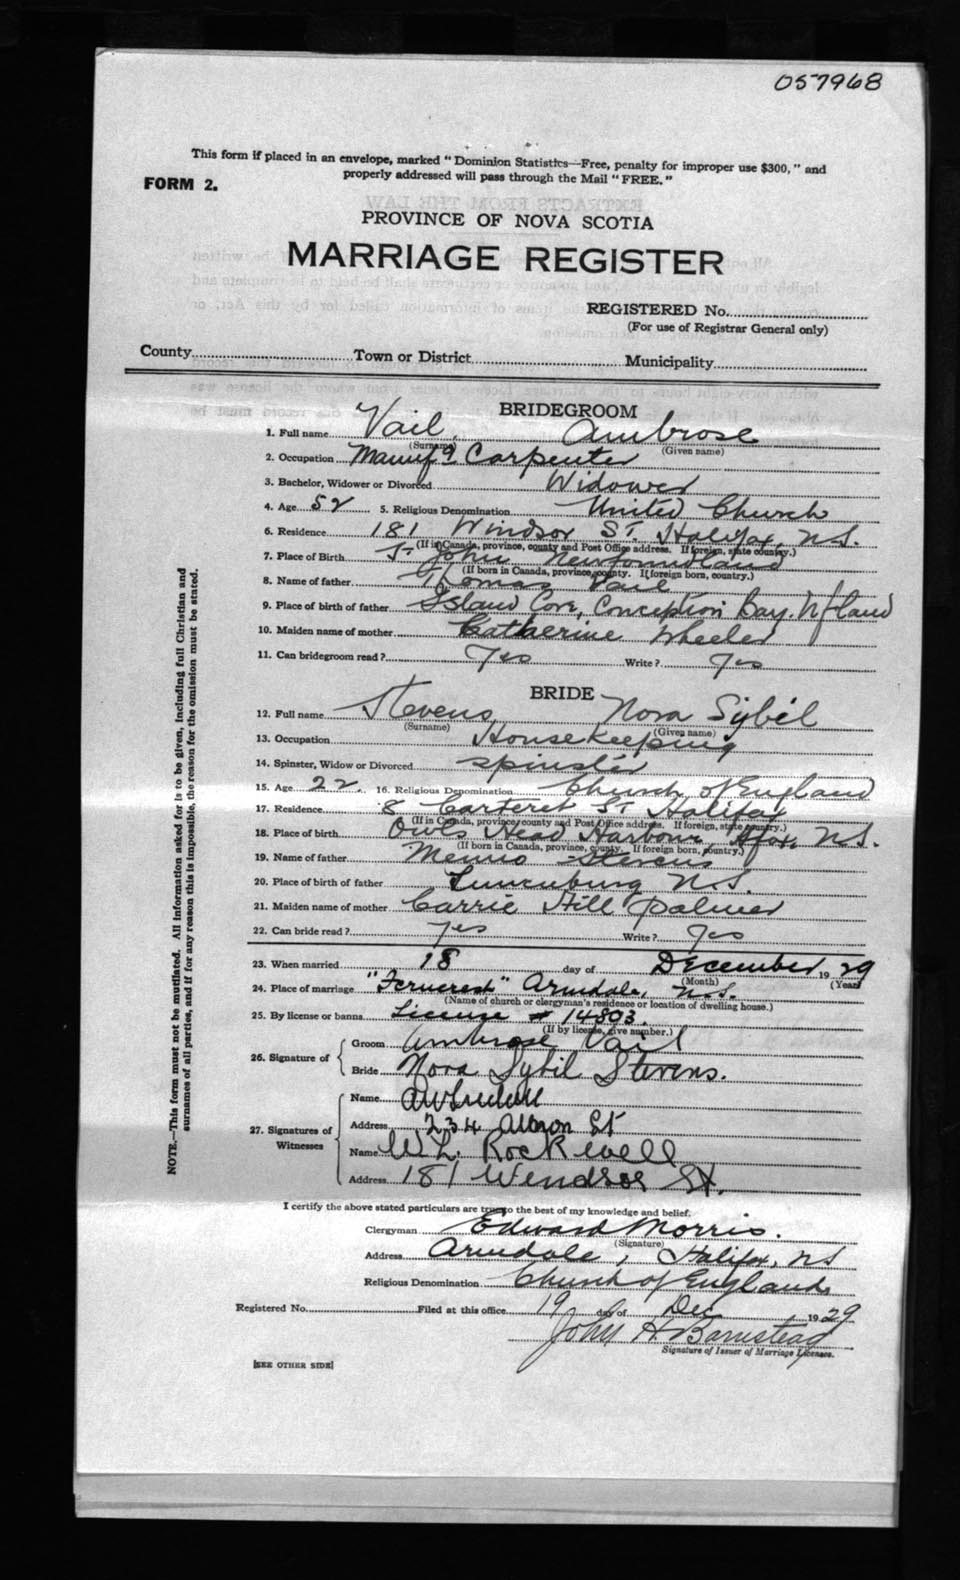 057968
This form if placed in an envelope, marked "Dominion Statistics—Free, penalty for improper use $300," and
properly addressed will pass through the Mail "FREE."
FORM 2.
PROVINCE OF NOVA SCOTIA
MARRIAGE REGISTER
REGISTERED No.
(For use of Registrar General only)
County Town or District Municipality
BRIDEGROOM
1. Full name Vail, Ambrose
(Surname) (Given name)
2. Occupation Manufg Carpenter
3. Bachelor, Widower or Divorced Widower
4. Age 52 5. Religious Denomination United Church
6. Residence 181 Windsor St. Halifax, N.S.
(If in Canada, province, county and Post Office address. If foreign, state country.)
7. Place of Birth St. Johns Newfoundland
(If born in Canada, province, county. If foreign born, country.)
8. Name of father Thomas Vail
9. Place of birth of father Island Cove, Conception Bay. Nfland
10. Maiden name of mother Catherine Wheeler
11. Can bridegroom read? Yes Write? Yes
BRIDE
12. Full name Stevens, Nora Sybil
(Surname) (Given name)
13. Occupation Housekeeping
14. Spinster, Widow or Divorced spinster
15. Age 22. 16. Religious Denomination Church of England
17. Residence 8 Carteret St Halifax
(If in Canada, province, county and Post Office address. If foreign, state country.)
18. Place of birth Owls Head Harbour, Hfox, N.S.
(If born in Canada, province, county. If foreign born, country.)
19. Name of father Menno Stevens
20. Place of birth of father Lunenburg N.S.
21. Maiden name of mother Carrie Hill Palmer
22. Can bride read? yes Write? Yes
23. When married 18 day of December 1929
(Month) (Year)
24. Place of marriage "Ferncrest" Armdale, N.S.
(Name of church or clergyman's residence or location of dwelling house.)
25. By license or banns License # 14803.
(If by license, give number.)
26. Signature of Groom Ambrose Vail
Bride Nora Sybil Stevens.
27. Signatures of Witnesses
Name
Address 234 St
Name W.L. Rockwell
Address 181 Windsor St.
I certify the above stated particulars are true to the best of my knowledge and belief.
Clergyman Edward Morris.
(Signature)
Address Armdale, Halifax, NS
Religious Denomination Church of England
Registered No. Filed at this office 19 day of Dec 1929
John H Barnstead
Signature of Issuer of Marriage Licenses.
[SEE OTHER SIDE]
NOTE.—This form must not be mutilated. All information asked for is to be given, including full Christian and
surnames of all parties, and if for any reason this is impossible, the reason for the omission must be stated.